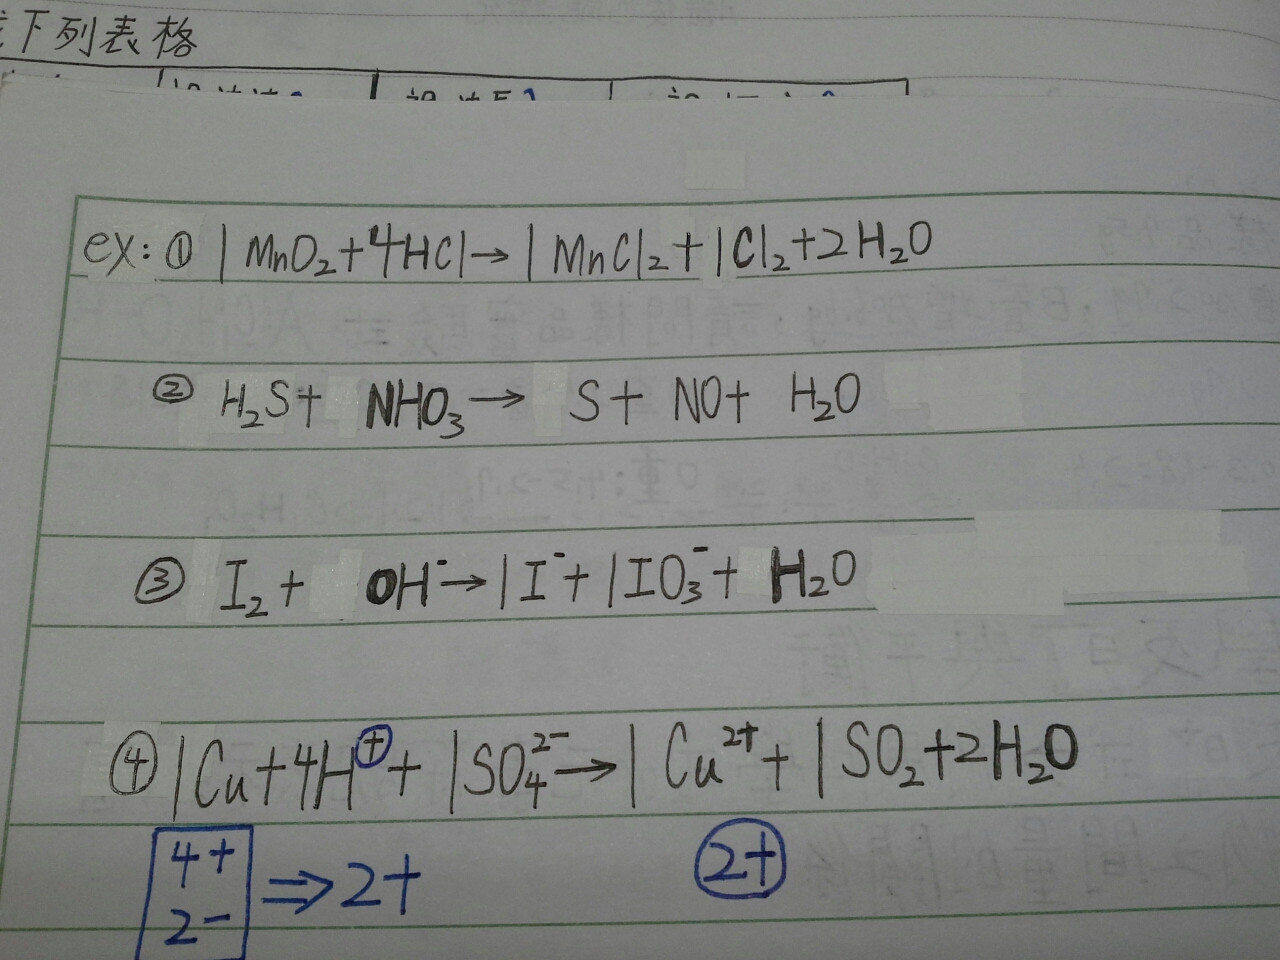 下列表格
ex: ① 1MnO₂+4HCl→1MnCl₂+1Cl₂+2H₂O
② H₂S+ NHO₃→ S+ NO+ H₂O
③ I₂+ OH⁻→1I⁻+1IO₃⁻+ H₂O
④ 1Cu+4H⁺+1SO₄²⁻→1Cu²⁺+1SO₂+2H₂O
4+
2- ⇒2+ 2+